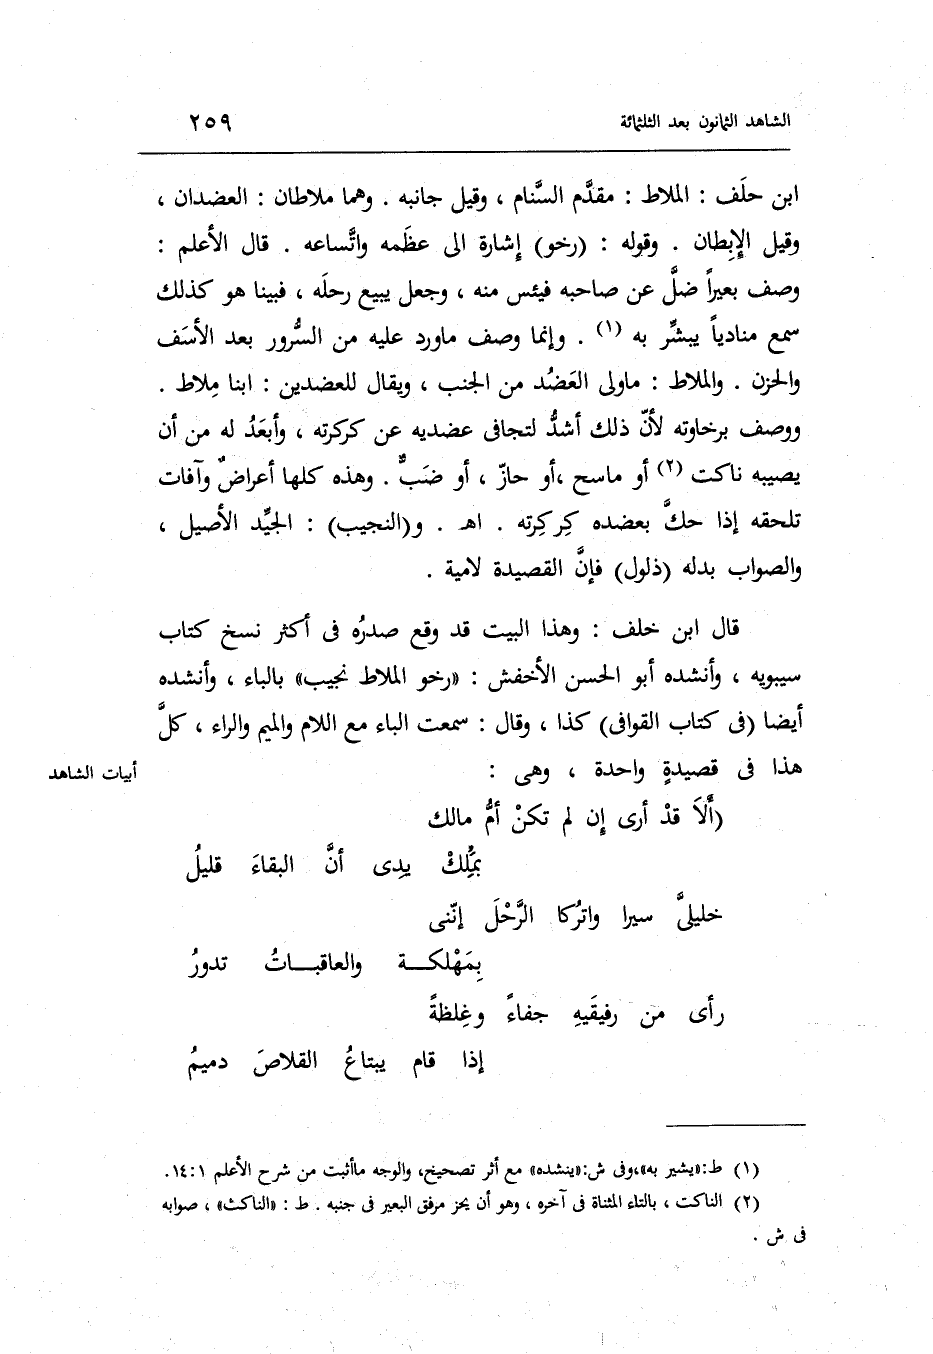 الشاهد الثمانون بعد الثلثمائة ٢٥٩
ابن خلَف : الملاط : مقدَّم السَّنام ، وقيل جانبه . وهما ملاطان : العضدان ،
وقيل الإِبِطان . وقوله : (رخو) إِشارة الى عظَمه واتَّساعه . قال الأعلم :
وصف بعيراً ضلَّ عن صاحبه فيئس منه ، وجعل يبيع رحلَه ، فبينا هو كذلك
سمع منادياً يبشِّر به (١) . وإنما وصف ماورد عليه من السُّرور بعد الأسَف
والحزن . والملاط : ماولى العَضُد من الجنب ، ويقال للعضدين : ابنا مِلاط .
ووصف برخاوته لأنّ ذلك أشدُّ لتجافى عضديه عن كركرته ، وأبعَدُ له من أن
يصيبه ناكت (٢) أو ماسح ،أو حازّ ، أو ضَبٌّ . وهذه كلها أعراضٌ وآفات
تلحقه إذا حكَّ بعضده كِركِرته . اهـ . و(النجيب) : الجيِّد الأصيل ،
والصواب بدله (ذلول) فإنَّ القصيدة لامية .
قال ابن خلف : وهذا البيت قد وقع صدرُه فى أكثر نسخ كتاب
سيبويه ، وأنشده أبو الحسن الأخفش : «رخو الملاط نجيب» بالباء ، وأنشده
أيضا (فى كتاب القوافى) كذا ، وقال : سمعت الباء مع اللام والميم والراء ، كلَّ
هذا فى قصيدةٍ واحدة ، وهى :
أبيات الشاهد
(أَلَا قدْ أرى إِن لم تكنْ أمُّ مالك
بمُلِكْ يدِى أنَّ البقاءَ قليلُ
خليلىَّ سيرا واترُكا الرَّحْلَ إنّنى
بِمَهْلكـــة والعاقبـــاتُ تدورُ
رأى من رفيقَيهِ جفاءً وغِلظةً
إذا قام يبتاعُ القلاصَ دميمُ
(١) ط:«يشير به»،وفى ش:«ينشده» مع أثر تصحيح، والوجه ماأثبت من شرح الأعلم ١٤:١.
(٢) الناكت ، بالتاء المثناة فى آخره ، وهو أن يحز مرفق البعير فى جنبه . ط : «الناكث» ، صوابه
فى ش .